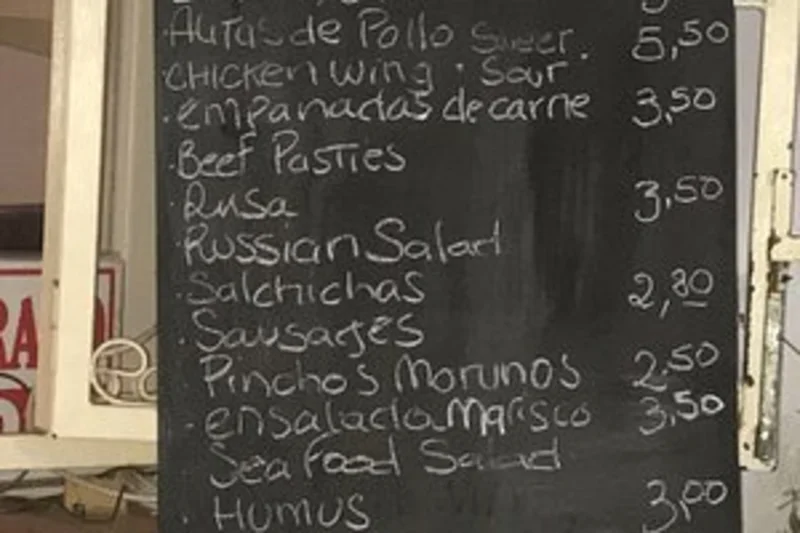 Alitas de Pollo Sweer. 5,50
CHICKEN wing. Sour
.empanadas de carne 3,50
.Beef Pasties
.Rusa 3,50
.Russian Salad
.Salchichas 2,80
.Sausages
Pinchos Morunos 2,50
.ensalada Marisco 3,50
Sea food Salad
.HUMUS 3,00
RA